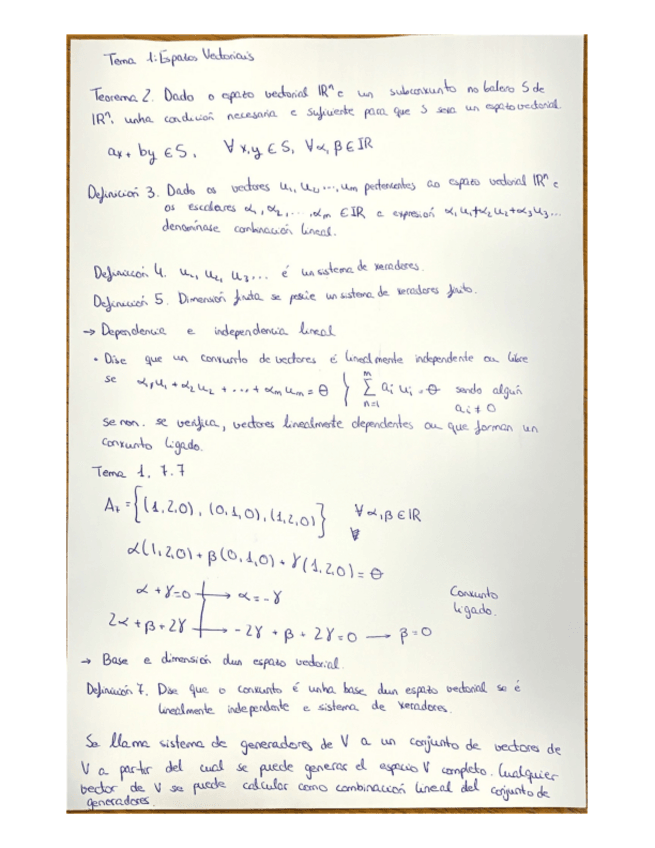 Tema 1: Espazos Vectoriais
Teorema 2. Dado o espazo vectorial IRⁿ e un subconxunto no baleiro S de
IRⁿ, unha condición necesaria e suficiente para que S sexa un espazo vectorial
ax + by ∈ S, ∀ x,y ∈ S, ∀ α, β ∈ IR
Definición 3. Dado os vectores u₁, u₂, ..., um pertencentes ao espazo vectorial IRⁿ e
os escalares α₁, α₂, ..., αm ∈ IR a expresión α₁u₁+α₂u₂+α₃u₃...
denomínase combinación lineal.
Definición 4. u₁, u₂, u₃... é un sistema de xeradores.
Definición 5. Dimensión finita se posúe un sistema de xeradores finito.
→ Dependencia e independencia lineal
• Dise que un conxunto de vectores é linealmente independente ou libre
se α₁u₁ + α₂u₂ + ... + αmum = θ } m Σ n=1 ai ui = θ sendo algún
ai ≠ 0
se non se verifica, vectores linealmente dependentes ou que forman un
conxunto ligado.
Tema 1, 7.7
A₇ = {(1,2,0), (0,1,0), (1,2,0)} ∀ α, β ∈ IR
∀
α(1,2,0) + β(0,1,0) + γ(1,2,0) = θ
α + γ = 0 → α = -γ
Conxunto
ligado.
2α + β + 2γ → -2γ + β + 2γ = 0 → β = 0
→ Base e dimensión dun espazo vectorial.
Definición 7. Dise que o conxunto é unha base dun espazo vectorial se é
linealmente independente e sistema de xeradores.
Se llama sistema de generadores de V a un conjunto de vectores de
V a partir del cual se puede generar el espacio V completo. Cualquier
vector de V se puede calcular como combinación lineal del conjunto de
generadores.